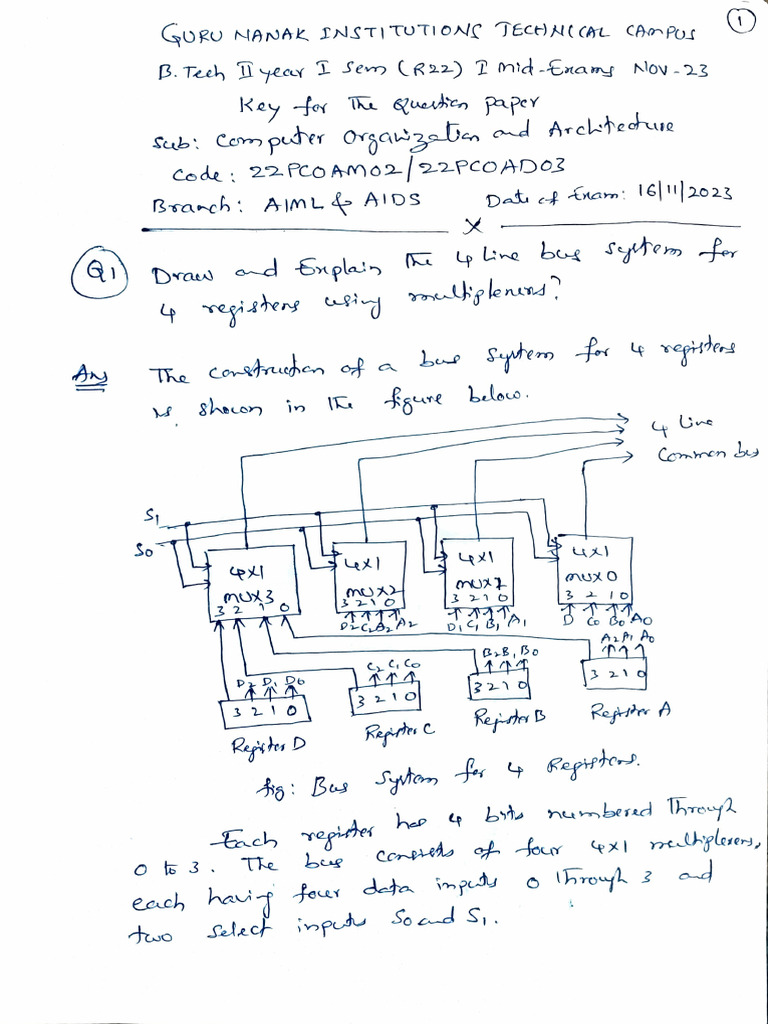 1
GURU NANAK INSTITUTIONS TECHNICAL CAMPUS
B.Tech II year I Sem (R22) I Mid-Exams Nov-23
Key for The Question paper
Sub: Computer Organization and Architecture
Code: 22PCOAM02/22PCOAD03
Branch: AIML & AIDS Date of Exam: 16/11/2023
X
Q1 Draw and Explain The 4 Line bus system for
4 registers using multiplexers?
Ans The construction of a bus system for 4 registers
is shown in the figure below.
4 Line
Common bus
S1
S0
4x1 4x1 4x1 4x1
MUX3 MUX2 MUX1 MUX0
3 2 1 0 3 2 1 0 3 2 1 0 3 2 1 0
D2 C2 A2 A2 D1 C1 B1 A1 D C0 B0 A0
D2 D1 D0 C2 C1 C0 B2 B1 B0 A2 A1 A0
3 2 1 0 3 2 1 0 3 2 1 0 3 2 1 0
Register D Register C Register B Register A
fig: Bus System for 4 Registers.
Each register has 4 bits numbered Through
0 to 3. The bus consists of four 4x1 multiplexers,
each having four data inputs 0 Through 3 and
two select inputs S0 and S1.